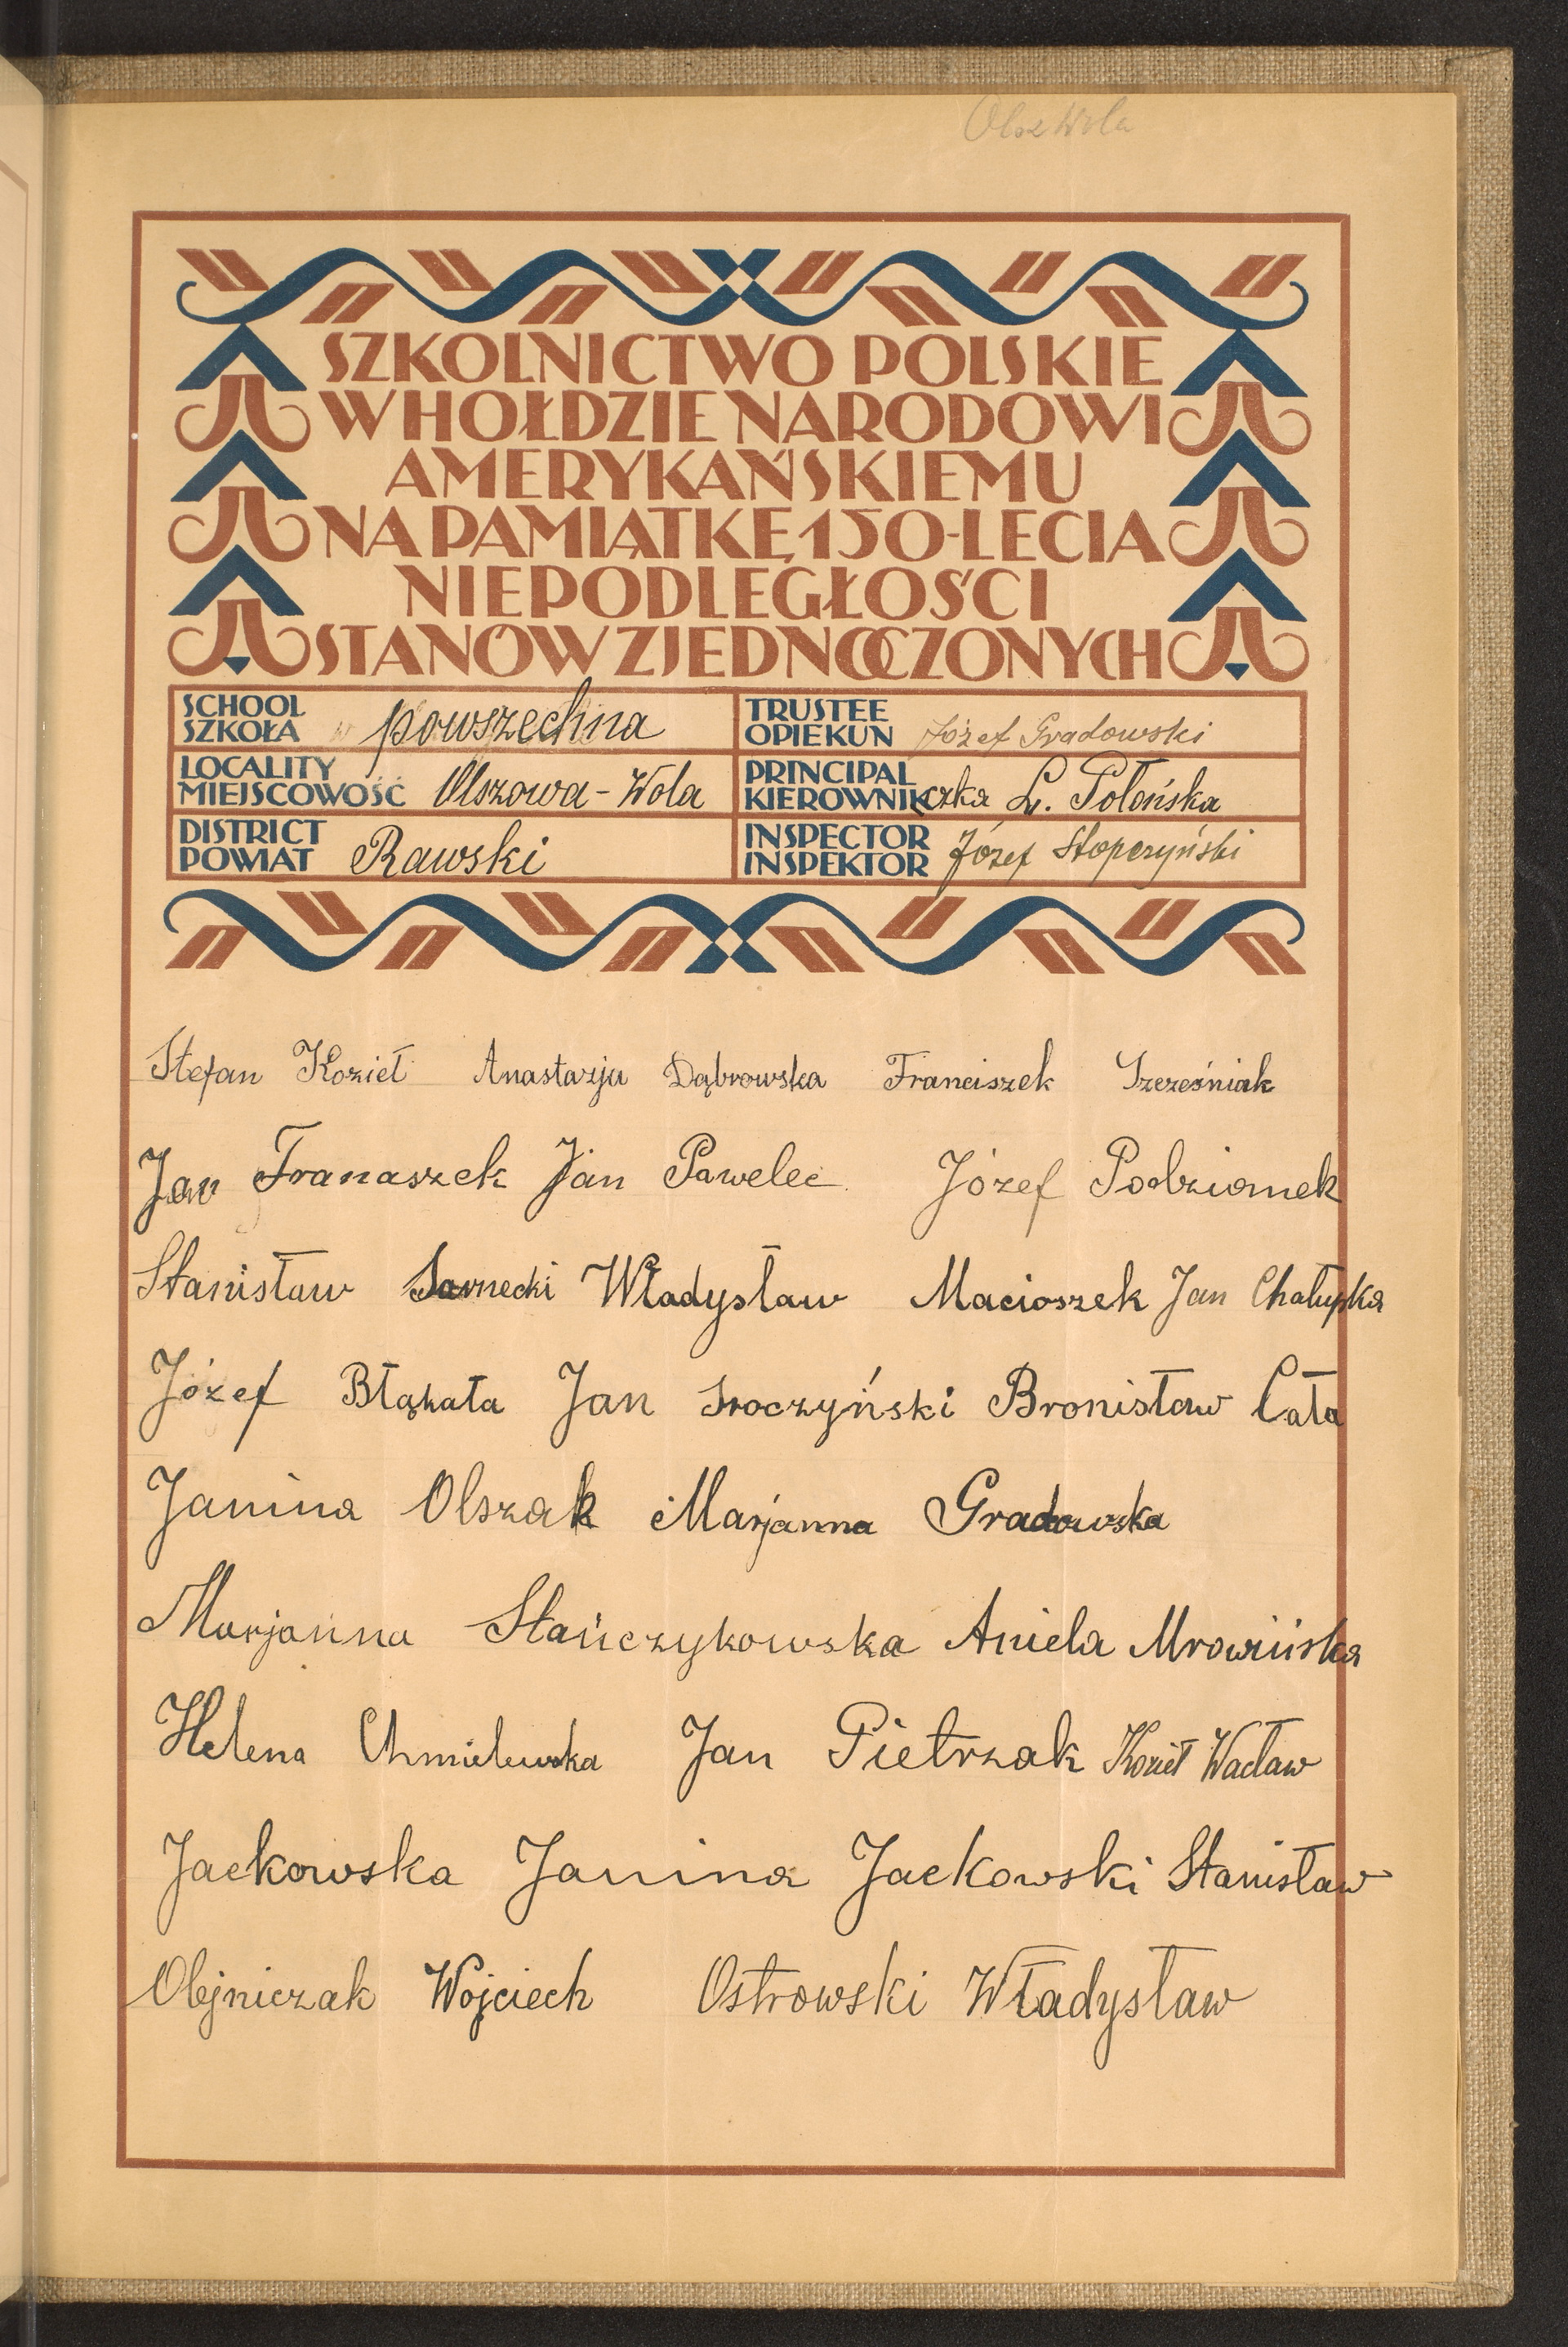 Olsz Wola
SZKOLNICTWO POLSKIE
W HOŁDZIE NARODOWI
AMERYKAŃSKIEMU
NA PAMIĄTKĘ 150-LECIA
NIEPODLEGŁOŚCI
STANÓW ZJEDNOCZONYCH
SCHOOL
SZKOŁA powszechna
TRUSTEE
OPIEKUN Józef Gradowski
LOCALITY
MIEJSCOWOŚĆ Olszowa-Wola
PRINCIPAL
KIEROWNIKczka L. Połońska
DISTRICT
POWIAT Rawski
INSPECTOR
INSPEKTOR Józef Stopczyński
Stefan Kozieł Anastazja Dąbrowska Franciszek Szcześniak
Jan Franaszek Jan Pawelec Józef Podziomek
Stanisław Sarnecki Władysław Macioszek Jan Chałupka
Józef Błąkała Jan Sroczyński Bronisław Cała
Janina Olszak Marjanna Gradowska
Marjanna Stańczykowska Aniela Mrowińska
Helena Chmielewska Jan Pietrzak Kozieł Wacław
Jackowska Janina Jackowski Stanisław
Olejniczak Wojciech Ostrowski Władysław